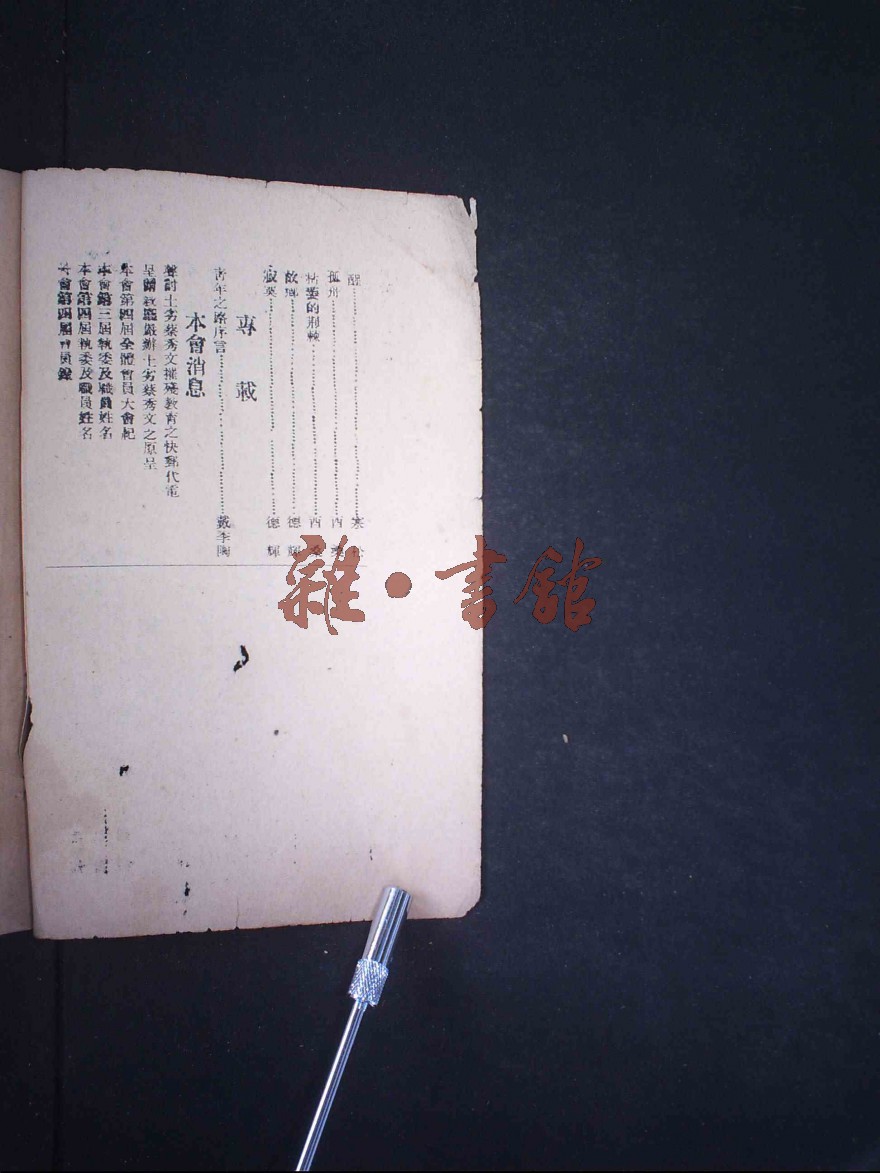 醒……寒松
孤舟……西
枯萎的荊棘……西
故鄉……德輝
寂寞……德輝
專載
青年之路序言……戴季陶
本會消息
聲討土劣蔡秀文摧殘教育之快郵代電
呈 教廳嚴辦土劣蔡秀文之原呈
本會第四屆全體會員大會紀
本會第三屆執委及職員姓名
本會第四屆執委及職員姓名
本會第四屆會員錄
雜·書館